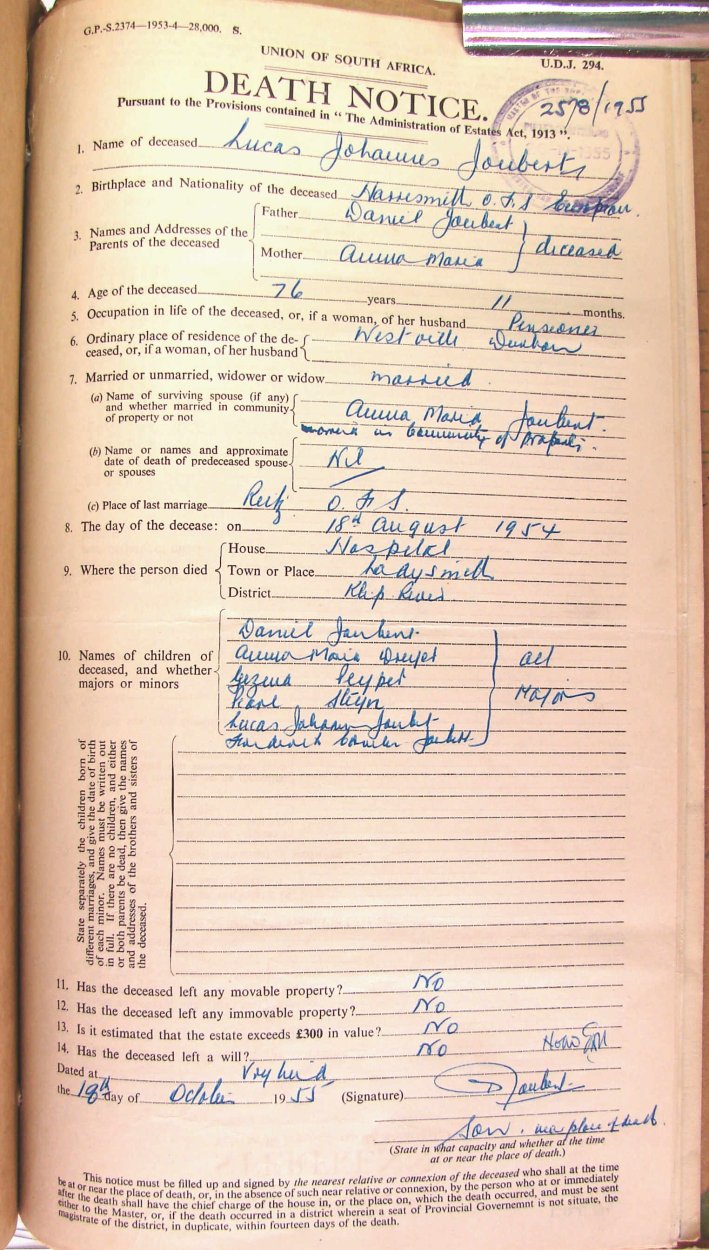 G.P.-S.2374—1953-4—28,000. S.
UNION OF SOUTH AFRICA.
U.D.J. 294.
DEATH NOTICE.
2578/1955
Pursuant to the Provisions contained in "The Administration of Estates Act, 1913".
1. Name of deceased Lucas Johannes Joubert
2. Birthplace and Nationality of the deceased Harresmith O.F.S European.
3. Names and Addresses of the Parents of the deceased
Father Daniel Joubert
Mother Anna Maria
deceased
4. Age of the deceased 76 years 11 months.
5. Occupation in life of the deceased, or, if a woman, of her husband Pensioner
6. Ordinary place of residence of the de-
ceased, or, if a woman, of her husband
Westville Durban
7. Married or unmarried, widower or widow married
(a) Name of surviving spouse (if any)
and whether married in community
of property or not
Anna Maria Joubert.
in Community of Property.
(b) Name or names and approximate
date of death of predeceased spouse
or spouses
Nil
(c) Place of last marriage Reitz O.F.S.
8. The day of the decease: on 18th August 1954
9. Where the person died
House Hospital
Town or Place Ladysmith
District Klip River
10. Names of children of
deceased, and whether
majors or minors
Daniel Joubert
Anna Maria Dreyer
Steyn
Lucas Johannes Joubert
Joubert
all
Majors
State separately the children born of
different marriages, and give the date of birth
of each minor. Names must be written out
in full. If there are no children, and either
or both parents be dead, then give the names
and addresses of the brothers and sisters of
the deceased.
11. Has the deceased left any movable property? No
12. Has the deceased left any immovable property? No
13. Is it estimated that the estate exceeds £300 in value? No
14. Has the deceased left a will? No
Dated at Vryheid
the 18th day of October 1955 (Signature) D Joubert
Son. near place of death.
(State in what capacity and whether at the time
at or near the place of death.)
This notice must be filled up and signed by the nearest relative or connexion of the deceased who shall at the time
be at or near the place of death, or, in the absence of such near relative or connexion, by the person who at or immediately
after the death shall have the chief charge of the house in, or the place on, which the death occurred, and must be sent
either to the Master, or, if the death occurred in a district wherein a seat of Provincial Governemnt is not situate, the
magistrate of the district, in duplicate, within fourteen days of the death.